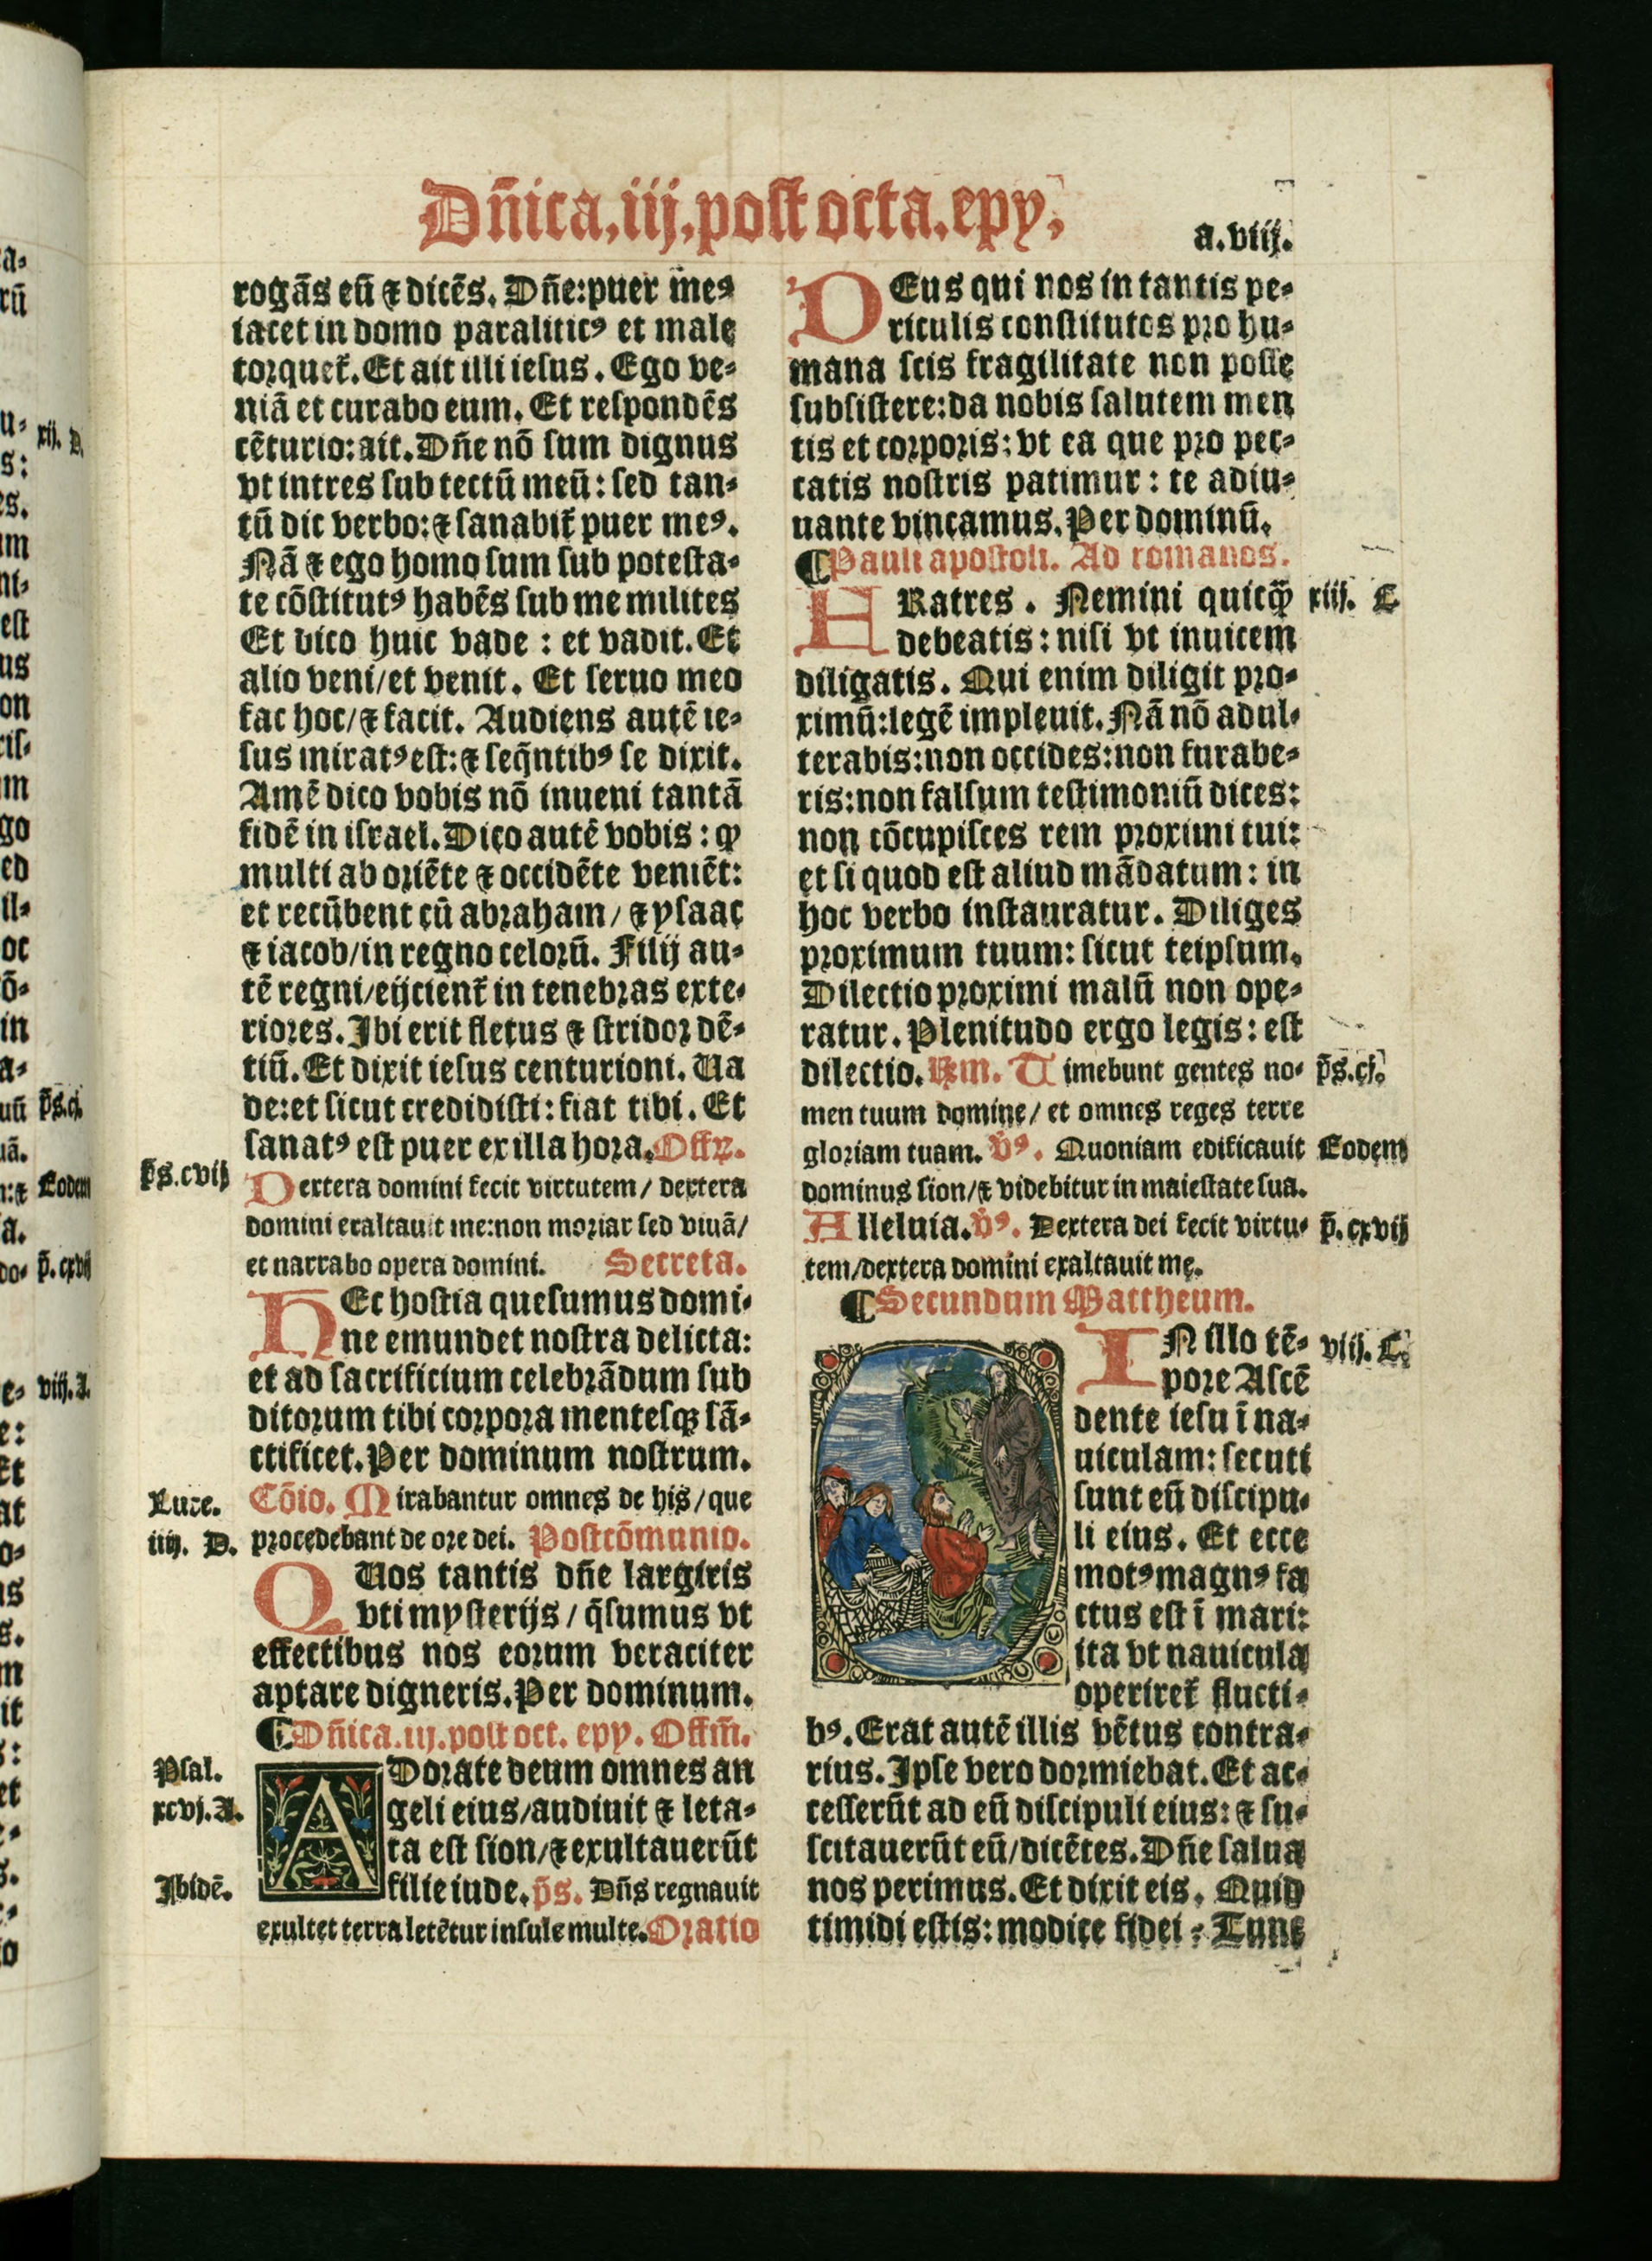 Dñica.iij.post octa.epy.
a.viij.
rogãs eũ ⁊ dicẽs. Dñe:puer meꝰ
iacet in domo paraliticꝰ et male
torquet᷑. Et ait illi iesus. Ego ve-
niã et curabo eum. Et respondẽs
cẽturio:ait. Dñe nõ sum dignus
vt intres sub tectũ meũ: sed tan-
tũ dic verbo:⁊ sanabit᷑ puer meꝰ.
Nã ⁊ ego homo sum sub potesta-
te cõstitutꝰ habẽs sub me milites
Et dico huic vade : et vadit. Et
alio veni/et venit. Et seruo meo
fac hoc/⁊ facit. Audiens autẽ ie-
sus miratꝰ est:⁊ seq̃ntibꝰ se dixit.
Amẽ dico vobis nõ inueni tantã
fidẽ in israel. Dico autẽ vobis : ꝙ
multi ab oriẽte ⁊ occidẽte veniẽt:
et recũbent cũ abraham/ ⁊ ysaac
⁊ iacob/in regno celorũ. Filij au-
tẽ regni/eijcient᷑ in tenebras exte-
riores. Ibi erit fletus ⁊ stridor dẽ-
tiũ. Et dixit iesus centurioni. Ua
de:et sicut credidisti: fiat tibi. Et
sanatꝰ est puer ex illa hora. Offꝝ.
ps̃.cvij
Dextera domini fecit virtutem/ dextera
domini exaltauit me:non moriar sed viuã/
et narrabo opera domini. Secreta.
HEc hostia quesumus domi-
ne emundet nostra delicta:
et ad sacrificium celebrãdum sub
ditorum tibi corpora mentesqꝫ sã-
ctificet. Per dominum nostrum.
Luce.
iiij. D.
Cõio. Mirabantur omnes de his/que
procedebant de ore dei. Postcõmunio.
QUos tantis dñe largiris
vti mysterijs/ q̃sumus vt
effectibus nos eorum veraciter
aptare digneris. Per dominum.
¶Dñica.iij.post oct. epy. Offm̃.
Psal.
xcvj.A.
ADorate deum omnes an
geli eius/audiuit ⁊ leta-
ta est sion/⁊ exultauerũt
Ibidẽ.
filie iude. ps̃. Dñs regnauit
exultet terra letẽtur insule multe. Oratio
DEus qui nos in tantis pe-
riculis constitutos pro hu-
mana scis fragilitate non posse
subsistere:da nobis salutem men
tis et corporis: vt ea que pro pec-
catis nostris patimur : te adiu-
uante vincamus. Per dominũ.
¶Pauli apostoli. Ad romanos.
FRatres . Nemini quicꝙ̃
xiij. C
debeatis : nisi vt inuicem
diligatis. Qui enim diligit pro-
ximũ:legẽ impleuit. Nã nõ adul-
terabis:non occides:non furabe-
ris:non falsum testimoniũ dices:
non cõcupisces rem proximi tui:
et si quod est aliud mãdatum: in
hoc verbo instauratur. Diliges
proximum tuum: sicut teipsum.
Dilectio proximi malũ non ope-
ratur. Plenitudo ergo legis: est
dilectio. Rm̃. Timebunt gentes no-
ps̃.cj.
men tuum domine/ et omnes reges terre
gloriam tuam. v̾ꝰ. Quoniam edificauit
Eodem
dominus sion/⁊ videbitur in maiestate sua.
Alleluia. v̾ꝰ. Dextera dei fecit virtu-
p̃. cxvij
tem/dextera domini exaltauit me.
¶Secundum Mattheum.
IN illo tẽ-
viij. C.
pore Ascẽ
dente iesu ĩ na-
uiculam: secuti
sunt eũ discipu-
li eius. Et ecce
motꝰ magnꝰ fa
ctus est ĩ mari:
ita vt nauicula
operiret᷑ flucti-
bꝰ. Erat autẽ illis vẽtus contra-
rius. Ipse vero dormiebat. Et ac-
cesserũt ad eũ discipuli eius: ⁊ su-
scitauerũt eũ/dicẽtes. Dñe salua
nos perimus. Et dixit eis. Quid
timidi estis: modice fidei : Tunc